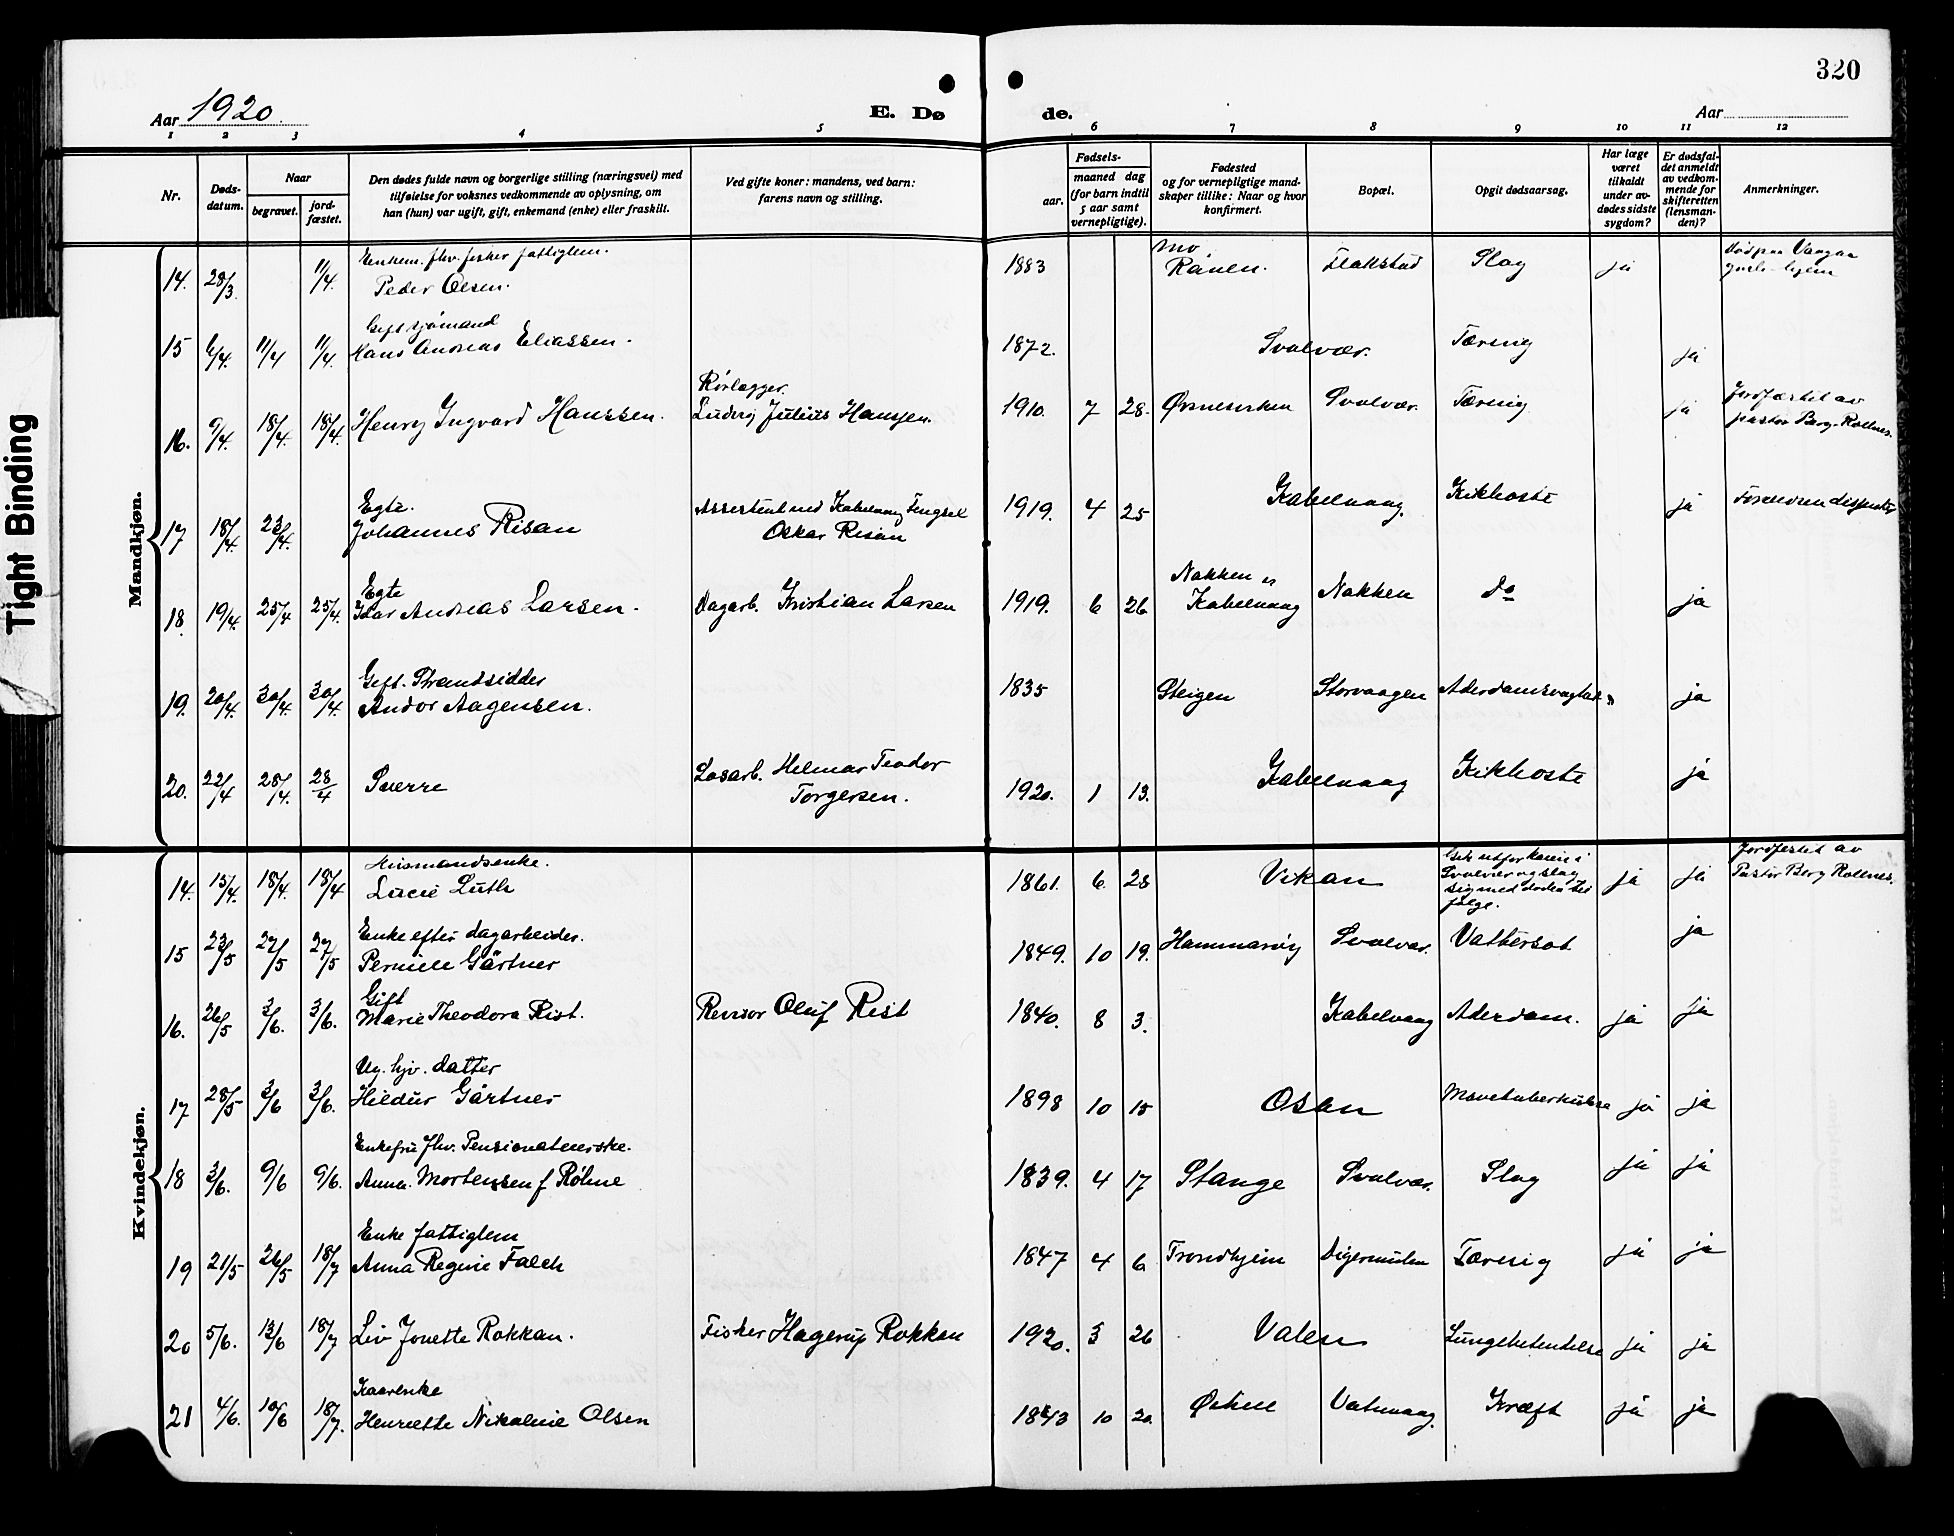 320
Aar 1920.
E. Dø
de.
Aar
1 2 3 4 5 6 7 8 9 10 11 12
Nr.
Døds-
datum.
Naar
begravet.
jord-
fæstet.
Den dødes fulde navn og borgerlige stilling (næringsvei) med
tilføielse for voksnes vedkommende av oplysning, om
han (hun) var ugift, gift, enkemand (enke) eller fraskilt.
Ved gifte koner: mandens, ved barn:
farens navn og stilling.
Fødsels-
aar.
maaned dag
(for barn indtil
5 aar samt
vernepligtige).
Fødested
og for vernepligtige mand-
skaper tillike: Naar og hvor
konfirmert.
Bopæl.
Opgit dødsaarsag.
Har læge
været
tilkaldt
under av-
dødes sidste
sygdom?
Er dødsfal-
det anmeldt
av vedkom-
mende for
skifteretten
(lensman-
den)?
Anmerkninger.
Tight Binding
Mandkjøn.
Enkem. fhv. fisker fattiglem.
14. 28/3 11/4. Peder Olsen. 1883 Mo Ranen. Flakstad Slag ja
Gift sjømand
15 6/4. 11/4 11/4. Hans Andreas Eliassen. 1872. Svolvær. Tæring ja
Rørlægger
16. 9/4. 18/4. 18/4. Henry Ingvard Hanssen. Ludvig Julius Hanssen. 1910. 7 28. Svolvær. Tæring ja Jordfæstet av
pastor Berg-Rollnes.
Egte.
17 18/4. 23/4. Johannes Risan Assistent ved Kabelvaag Fengsel
Oskar Risan 1919. 4 25 Kabelvaag. Kikhoste ja
Egte
18. 19/4. 25/4 25/4. Andreas Larsen. Dagarb. Kristian Larsen 1919. 6 26 Nakken
Kabelvaag Nakken do ja
Gift. Strandsidder
19. 20/4. 30/4. 30/4. Andor Aagensen. 1835 Steigen Storvaagen ja
20. 22/4 28/4. 28/4 Sverre Løsarb. Helmar Teodor
Torgersen. 1920. 1 13. Kabelvaag Kikhoste ja
Kvindekjøn.
Husmandsenke.
14. 15/4. 18/4. 18/4 Lucie Luth 1861. 6 28 Vikan Gik utfor kaien i
Svolvær og slog
sig med døden til
følge. ja ja Jordfestet av
Pastor Berg Rollnes.
Enke efter dagarbeider.
15 23/5 27/5 27/5 Pernille Gärtner 1849. 10 19. Hammarøy Svolvær. Vattersot ja
Gift
16. 26/5 3/6. 3/6. Marie Theodora Rist. Revisor Oluf Rist 1840. 8 3. Kabelvaag Aderdom. ja ja
Ug. hjv. datter
17 28/5 3/6 3/6. Hildur Gärtner 1898 10 15 Osan Mavetuberkulose ja ja
Enkefru fhv. Pensionatværtske.
18 3/6. 9/6 9/6. Anna. Mortensen f. Røhne 1839. 4 17 Stange Svolvær. Slag ja ja
Enke fattiglem
19 21/5 26/5 18/7 Anna Regine Falch 1847 4 6 Trondhjem Digermulen Tæring ja ja
20 5/6. 13/6 18/7 Liv Jonette Rokkan. Fisker Hagerup Rokkan 1920. 3 26 Valen Lungebetendelse ja ja
Kaarenke
21 4/6. 10/6 18/7. Henriette Nikoline Olsen 1843 10 20. Vatnvaag. Kræft ja ja